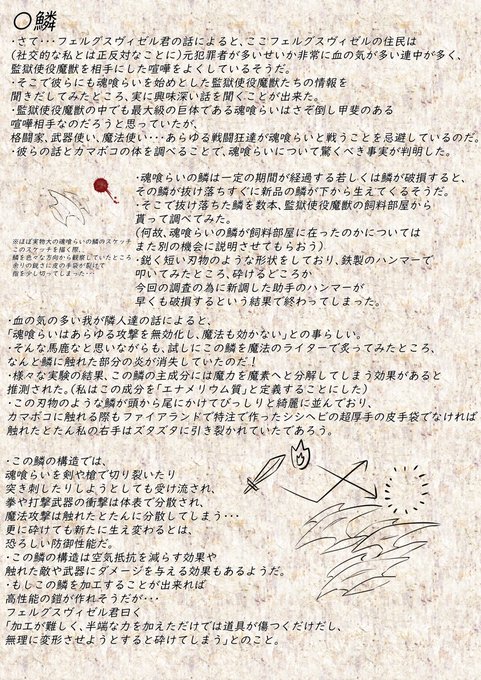 〇鱗
・さて･･･フェルグスヴィゼル君の話によると、ここフェルグスヴィゼルの住民は
(社交的な私とは正反対なことに)元犯罪者が多いせいか非常に血の気が多い連中が多く、
監獄使役魔獣を相手にした喧嘩をよくしているそうだ。
・そこで彼らにも魂喰らいを始めとした監獄使役魔獣たちの情報を
聞きだしてみたところ、実に興味深い話を聞くことが出来た。
・監獄使役魔獣の中でも最大級の巨体である魂喰らいはさぞ倒し甲斐のある
喧嘩相手なのだろうと思っていたが、
格闘家、武器使い、魔法使い･･･あらゆる戦闘狂達が魂喰らいと戦うことを忌避しているのだ。
・彼らの話とカマボコの体を調べることで、魂喰らいについて驚くべき事実が判明した。
・魂喰らいの鱗は一定の期間が経過する若しくは鱗が破損すると、
その鱗が抜け落ちすぐに新品の鱗が下から生えてくるそうだ。
・そこで抜け落ちた鱗を数本、監獄使役魔獣の飼料部屋から
貰って調べてみた。
(何故、魂喰らいの鱗が飼料部屋に在ったのかについては
また別の機会に説明させてもらおう)
・鋭く短い刃物のような形状をしており、鉄製のハンマーで
叩いてみたところ、砕けるどころか
今回の調査の為に新調した助手のハンマーが
早くも破損するという結果で終わってしまった。
※ほぼ実物大の魂喰らいの鱗のスケッチ
このスケッチを描く際、
鱗を色々な方向から観察していたところ
余りの鋭さに皮の手袋が裂けて
指を少し切ってしまった･･･
・血の気の多い我が隣人達の話によると、
「魂喰らいはあらゆる攻撃を無効化し、魔法も効かない」との事らしい。
・そんな馬鹿なと思いながらも、試しにこの鱗を魔法のライターで炙ってみたところ、
なんと鱗に触れた部分の炎が消失していたのだ！
・様々な実験の結果、この鱗の主成分には魔力を魔素へと分解してしまう効果があると
推測された。(私はこの成分を「エナメリウム質」と定義することにした)
・この刃物のような鱗が頭から尾にかけてびっしりと綺麗に並んでおり、
カマボコに触れる際もファイアランドで特注で作ったシシヘビの超厚手の皮手袋でなければ
触れたとたん私の右手はズタズタに引き裂かれていたであろう。
・この鱗の構造では、
魂喰らいを剣や槍で切り裂いたり
突き刺したりしようとしても受け流され、
拳や打撃武器の衝撃は体表で分散され、
魔法攻撃は触れたとたんに分散してしまう･･･
更に砕けても新たに生え変わるとは、
恐ろしい防御性能だ。
・この鱗の構造は空気抵抗を減らす効果や
触れた敵や武器にダメージを与える効果もあるようだ。
・もしこの鱗を加工することが出来れば
高性能の鎧が作れそうだが･･･
フェルグスヴィゼル君曰く
「加工が難しく、半端な力を加えただけでは道具が傷つくだけだし、
無理に変形させようとすると砕けてしまう」とのこと。